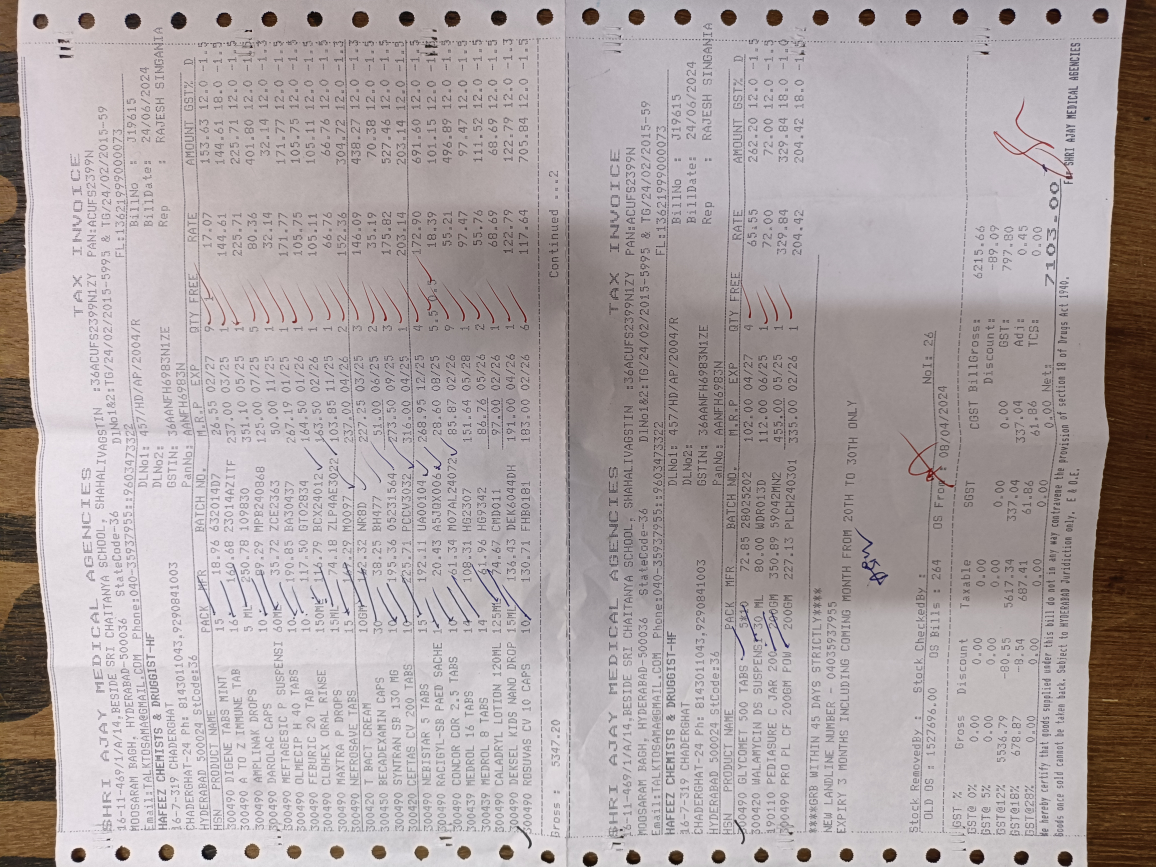 SHRI AJAY MEDICAL AGENCIES TAX INVOICE
16-11-469/1/A/14,BESIDE SRI CHAITANYA SCHOOL, SHAHALIVAGSTIN :36ACUFS2399N1ZY PAN:ACUFS2399N
MOOSARAM BAGH, HYDERABAD-500036 StateCode-36 DlNo1&2:TG/24/02/2015-5995 & TG/24/02/2015-59
Email:TALKTOSAMA@GMAIL.COM Phone:040-35937955::9603473322 FL:13621999000073
HAFEEZ CHEMISTS & DRUGGIST-HF DLNo1: 457/HD/AP/2004/R BillNo : J19615
16-7-319 CHADERGHAT DLNo2: BillDate: 24/06/2024
CHADERGHAT-24 Ph: 8143011043,9290841003 GSTIN: 36AANFH6983N1ZE Rep : RAJESH SINGANIA
HYDERABAD 500024 Stcode:36 PanNo: AANFH6983N
HSN PRODUCT NAME PACK MFR BATCH NO. M.R.P EXP QTY FREE RATE AMOUNT GST% D
300490 DIGENE TABS MINT 15 18.96 63201407 26.55 02/27 9 17.07 153.63 12.0 -1.5
300490 A TO Z IMMUNE TAB 15 160.68 23014AZITF 237.00 03/25 1 144.61 144.61 18.0 -1.5
300490 AMPLINAK DROPS 5 ML 250.78 109830 351.10 05/25 1 225.71 225.71 12.0 -1.5
300490 DAROLAC CAPS 10 89.29 MPB240868 125.00 07/25 5 80.36 401.80 12.0 -1.5
300490 MEFTAGESIC P SUSPENSI 60ML 35.72 ZCE2363 50.00 11/25 1 32.14 32.14 12.0 -1.3
300490 OLMECIP H 40 TABS 10 190.85 BA30437 267.19 01/25 1 171.77 171.77 12.0 -1.5
300490 FEBURIC 20 TAB 10 117.50 GTO2834 164.50 01/26 1 105.75 105.75 12.0 -1.5
300490 CLOHEX ORAL RINSE 150ML 116.79 BCX24012 163.50 02/26 1 105.11 105.11 12.0 -1.5
300490 MAXTRA P DROPS 15ML 74.18 ZLP4AE3022 103.85 11/25 1 66.76 66.76 12.0 -1.5
300490 NEEROSAVE TABS 15 169.29 MO097 237.00 04/26 2 152.36 304.72 12.0 -1.3
300420 T BACT CREAM 10GM 162.32 NRBD 227.25 03/25 3 146.09 438.27 12.0 -1.5
300450 BECADEXAMIN CAPS 30 38.25 BH477 51.00 06/25 2 35.19 70.38 12.0 -1.5
300490 SYNTRAN SB 130 MG 195.36 05231564 273.50 09/25 3 175.82 527.46 12.0 -1.5
300420 CETTAS CV 200 TABS 10 225.71 PCCV3032 316.00 04/25 1 203.14 203.14 12.0 -1.5
300490 NEBISTAR 5 TABS 15 192.11 UA00104 268.95 12/25 4 172.90 691.60 12.0 -1.5
300490 RACIGYL-SB PAED SACHE 1 20.43 A5JDX006 28.60 08/25 5.5 0.5 18.39 101.15 12.0 -1.5
300490 CONCOR COR 2.5 TABS 10 61.34 MO7AL24072 85.87 02/26 9 55.21 496.89 12.0 -1.5
300439 MEDROL 16 TABS 14 108.31 HG2307 151.64 05/28 1 97.47 97.47 12.0 -1.5
300439 MEDROL 8 TABS 61.96 HG9342 86.76 05/26 2 55.76 111.52 12.0 -1.5
300490 CALADRYL LOTION 120ML 125ML 74.67 CMD011 97.00 11/25 1 68.69 68.69 12.0 -1.5
300490 DEKSEL KIDS NANO DROP 15ML 136.43 DEK6044DH 191.00 04/26 1 122.79 122.79 12.0 -1.3
300490 ROSUVAS CV 10 CAPS 10 130.71 FHB0181 183.00 02/26 6 117.64 705.84 12.0 -1.5
Gross : 5347.20 Continued ...2
SHRI AJAY MEDICAL AGENCIES TAX INVOICE
16-11-469/1/A/14,BESIDE SRI CHAITANYA SCHOOL, SHAHALIVAGSTIN :36ACUFS2399N1ZY PAN:ACUFS2399N
MOOSARAM BAGH, HYDERABAD-500036 StateCode-36 DlNo1&2:TG/24/02/2015-5995 & TG/24/02/2015-59
Email:TALKTOSAMA@GMAIL.COM Phone:040-35937955::9603473322 FL:13621999000073
HAFEEZ CHEMISTS & DRUGGIST-HF DLNo1: 457/HD/AP/2004/R BillNo : J19615
16-7-319 CHADERGHAT DLNo2: BillDate: 24/06/2024
CHADERGHAT-24 Ph: 8143011043,9290841003 GSTIN: 36AANFH6983N1ZE Rep : RAJESH SINGANIA
HYDERABAD 500024 Stcode:36 PanNo: AANFH6983N
HSN PRODUCT NAME PACK MFR BATCH NO. M.R.P EXP QTY FREE RATE AMOUNT GST% D
300490 GLYCOMET 500 TABS 72.85 28025202 102.00 04/27 4 65.55 262.20 12.0 -1.5
300420 WALAMYCIN DS SUSPENSI 30 ML 80.00 WDR013D 112.00 06/25 1 72.00 72.00 12.0 -1.5
190110 PEDIASURE C JAR 200 200GM 350.89 59042MN2 455.00 05/25 1 329.84 329.84 18.0 -1.0
300490 PRO PL CF 200GM POW 200GM 227.13 PLCH240301 335.00 02/26 1 204.42 204.42 18.0 -1.5
****GRB WITHIN 45 DAYS STRICTLY****
NEW LANDLINE NUMBER - 04035937955
EXPIRY 3 MONTHS INCLUDING COMING MONTH FROM 20TH TO 30TH ONLY
Stock RemovedBy : Stock CheckedBy :
OLD OS : 152696.00 OS Bills : 264 OS From : 08/04/2024 NoI: 26
GST % Gross Discount Taxable SGST CGST BillGross: 6215.66
GST@ 0% 0.00 0.00 0.00 0.00 0.00 Discount: -89.09
GST@ 5% 0.00 0.00 0.00 0.00 0.00 GST: 797.80
GST@12% 5536.79 -80.55 5617.34 337.04 337.04 Adj: 0.45
GST@18% 678.87 -8.54 687.41 61.86 61.86 TCS: 0.00
GST@28% 0.00 0.00 0.00 0.00 0.00 Net: 7103.00
We hereby certify that goods supplied under this bill do not in any way contravene the provision of section 18 of Drugs Act 1940.
Goods once sold cannot be taken back. Subject to HYDERABAD Juridiction only. E & O.E. For SHRI AJAY MEDICAL AGENCIES